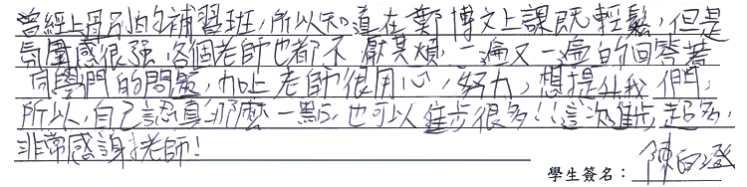 曾經上過別的補習班，所以知道在鄭博文上課既輕鬆，但是
氛圍感很強，各個老師也都不厭其煩，一遍又一遍的回答著
同學門的問題，加上老師很用心，努力，想提升我們，
所以，自己認真那麼一點，也可以進步很多!!這次進步超多，
非常感謝老師!
學生簽名：陳白澄